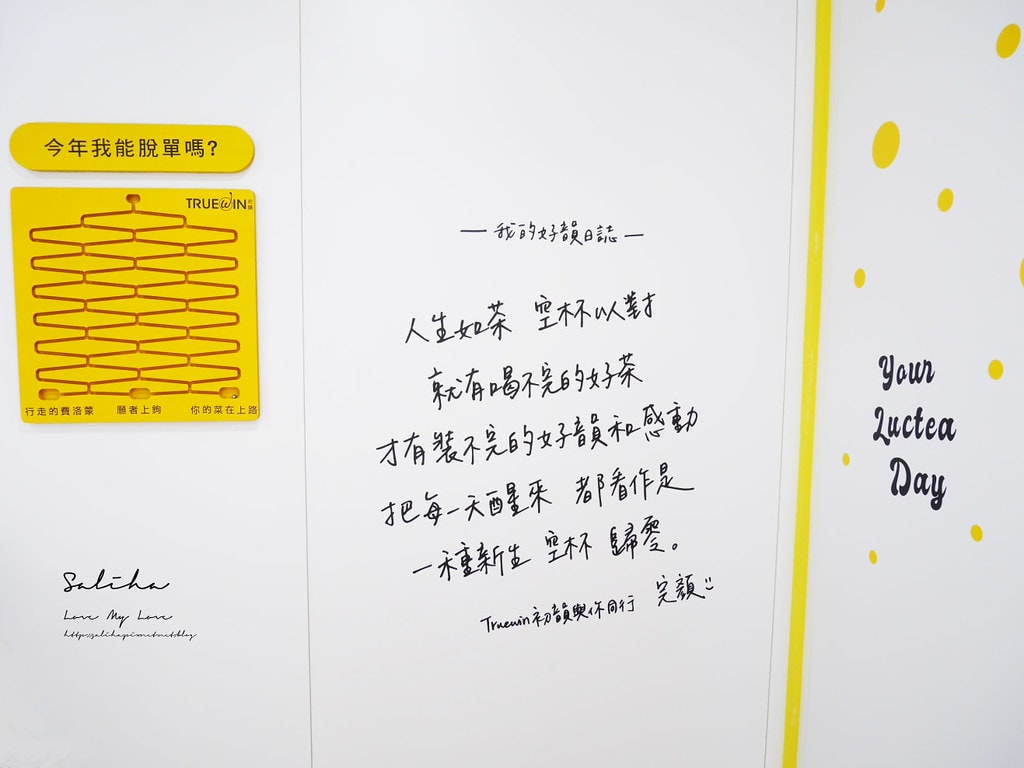 今年我能脫單嗎?
TRUE@IN初韻
行走的費洛蒙 願者上鉤 你的菜在上路
— 我的好韻日誌 —
人生如茶 空杯以對
就有喝不完的好茶
才有裝不完的好韻和感動
把每一天醒來 都看作是
一種新生 空杯 歸零。
Truewin初韻與你同行 完顏
Your
Luctea
Day
Saliha
Love My Love
https://saliha.pixnet.net/blog